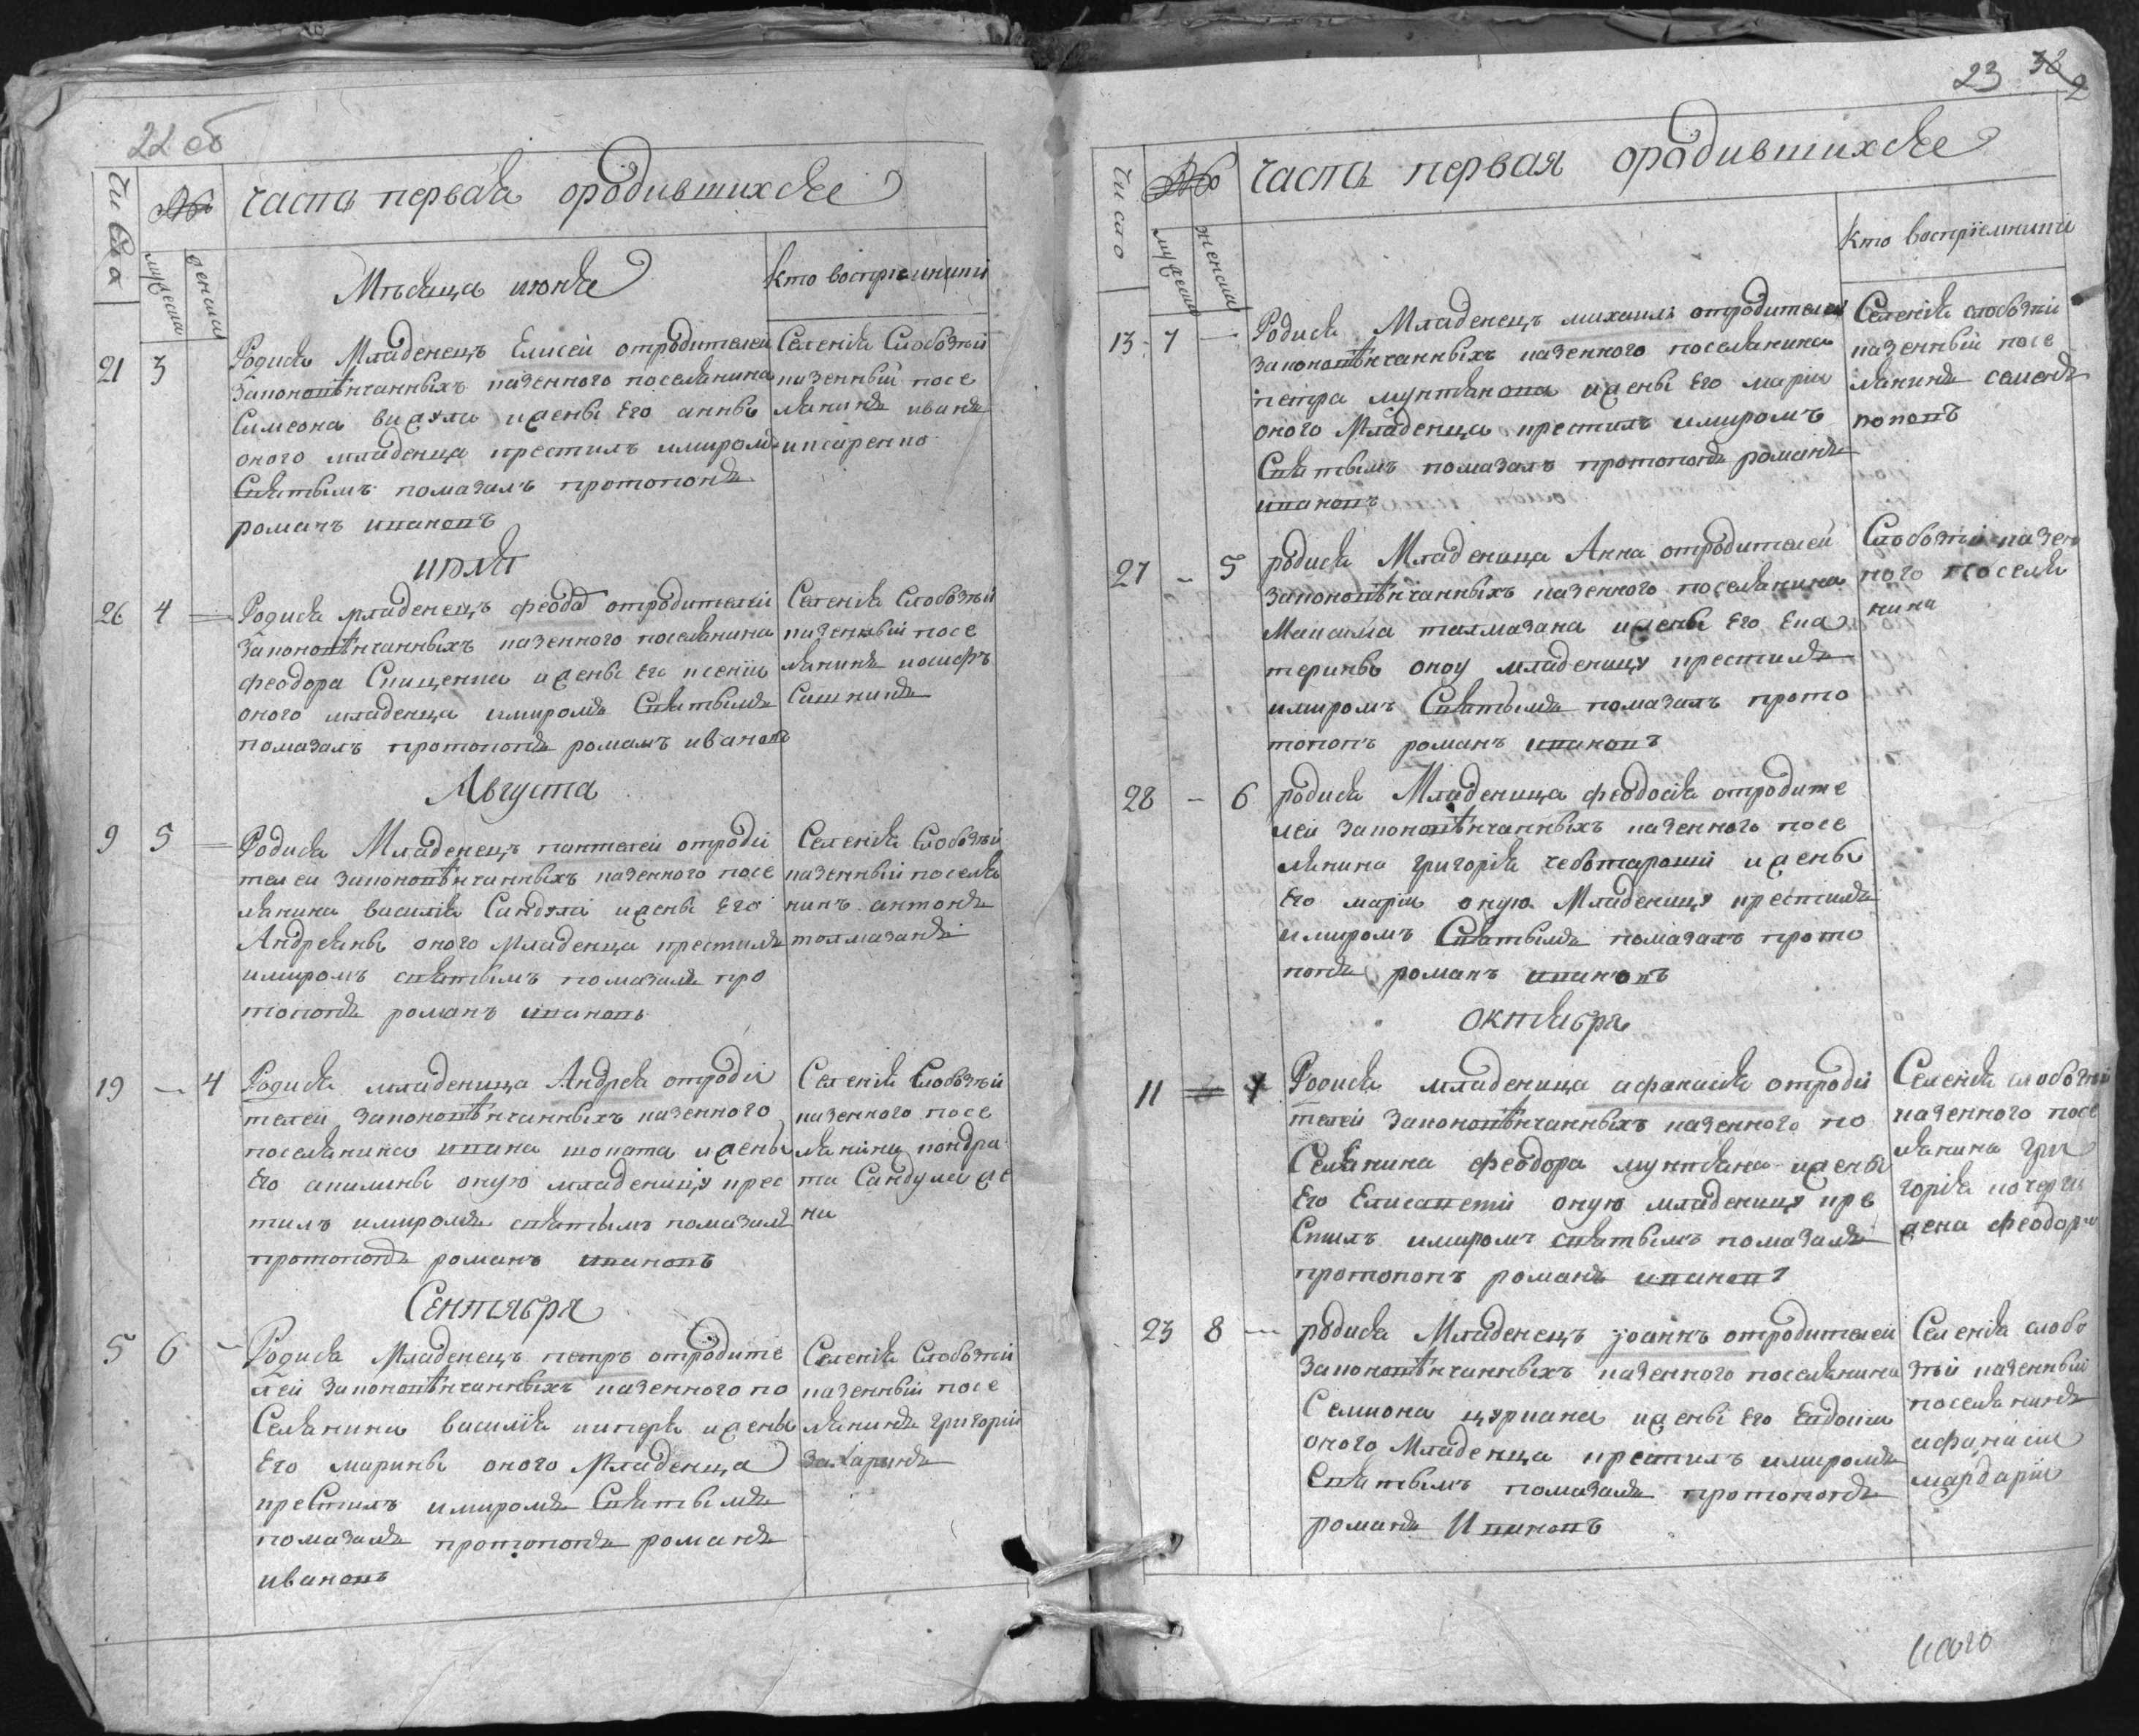 22 об
Числа
№
мужеска
женска
Часть первая ородившихся
Мѣсяца июня
Кто восприемники
21 3
Родися Младенецъ Елисей отродителей
законовѣнчанныхъ казенного поселянина
Симеона ви жены Его анны
оного младенца крестилъ имиромъ
Святымъ помазалъ протопопъ
романъ ивановъ
Селенія Слобозѣи
казенный посе
лянинъ иванъ
июля
26 4
Родися младенецъ феодоръ отродителей
законовѣнчанныхъ казенного поселянина
феодора Спищенка и жены Его ксеніи
оного младенца имиромъ Святымъ
помазалъ протопопъ романъ ивановъ
Селенія Слобозѣи
казенный посе
лянинъ иосифъ
Августа
9 5
Родися Младенецъ пантелей отроди
телей законовѣнчанныхъ казенного посе
лянина василія Сандула и жены Его
Андреяны оного Младенца крестилъ
имиромъ святымъ помазалъ про
топопъ романъ ивановъ
Селенія Слобозѣи
казенный поселя
нинъ антонъ
толмазанъ
19 — 4
Родися младеница Андрея отроди
телей законовѣнчанныхъ казенного
поселянина ивана шопата и жены
Его акилины оную младеницу крес
тилъ имиромъ святымъ помазалъ
протопопъ романъ ивановъ
Селенія Слобозѣи
казенного посе
лянина кондра
та Сандула же
на
Сентября
5 6 —
Родися Младенецъ петръ отродите
лей законовѣнчанныхъ казенного по
Селянина василія киперя и жены
Его марины оного Младенца
крестилъ имиромъ Святымъ
помазалъ протопопъ романъ
ивановъ
Селенія Слобозѣи
казенный посе
лянинъ григорій
23 38
2
Число
№
мужеска
женска
Часть первая ородившихся
Кто восприемники
13 7 —
Родися Младенецъ михаилъ отродителей
законовѣнчанныхъ казенного поселянина
петра мунтянова и жены Его маріи
оного Младенца крестилъ имиромъ
Святымъ помазалъ протопопъ романъ
ивановъ
Селенія слобозѣи
казенный посе
лянинъ семенъ
поповъ
27 - 5
родися Младеница Анна отродителей
законовѣнчанныхъ казенного поселянина
Максима талмазана и жены Его Ека
терины оноу младеницу крестилъ
имиромъ Святымъ помазалъ прото
топопъ романъ ивановъ
Слобозѣи казен
ного поселя
нина
28 - 6
родися Младеница феодосія отродите
лей законовѣнчанныхъ казенного посе
лянина григорія чеботарошій и жены
Его маріи оную Младеницу крестилъ
имиромъ Святымъ помазалъ прото
попъ романъ ивановъ
октября
11
Родися младеница афанасія отроди
телей законовѣнчанныхъ казенного по
Селянина феодора мунтяна и жены
Его Елисавети оную младеницу кре
Стилъ имиромъ святымъ помазалъ
протопопъ романъ ивановъ
Селенія слобозѣи
казенного посе
лянина гри
горія
жена феодора
23 8 —
родися Младенецъ іоаннъ отродителей
законовѣнчанныхъ казенного поселянина
Семиона цуркана и жены Его Евдокіи
оного Младенца крестилъ имиромъ
Святымъ помазалъ протопопъ
романъ Ивановъ
Селенія слобо
зѣи казенный
поселянинъ
афанасій
мардарій